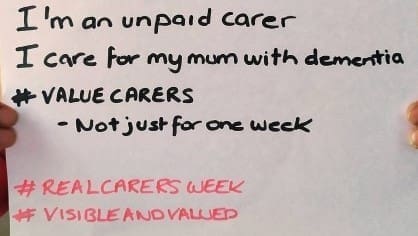 I'm an unpaid carer
I care for my mum with dementia
# VALUE CARERS
- Not just for one week
# REALCARERS WEEK
# VISIBLEANDVALUED